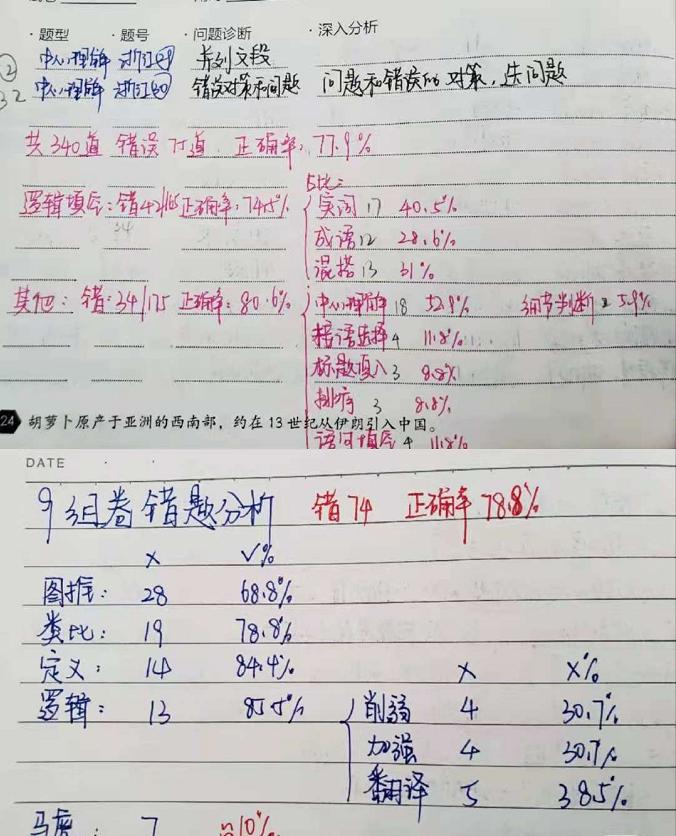 ·题型 ·题号 ·问题诊断 ·深入分析
② 中心理解 浙江 并列文段
32 中心理解 浙江 错误对策和问题 问题和错误的对策,选问题
共340道 错误75道 正确率:77.9%
占比:
逻辑填空:错42/165 正确率:74.5% 实词 17 40.5%
34 成语 12 28.6%
混搭 13 31%
其他:错:34/175 正确率:80.6% 中心理解 18 52.9% 细节判断 2 5.9%
接语选择 4 11.8%
标题填入 3 8.8%
排序 3 8.8%
24 胡萝卜原产于亚洲的西南部,约在13世纪从伊朗引入中国。
语句填空 4 11.8%
DATE
9组卷错题分析 错74 正确率78.8%
× √%
图推: 28 68.8%
类比: 19 78.8%
定义: 14 84.4% × ×%
逻辑: 13 85.5% 削弱 4 30.7%
加强 4 30.7%
翻译 5 38.5%
马虎: 7 10%